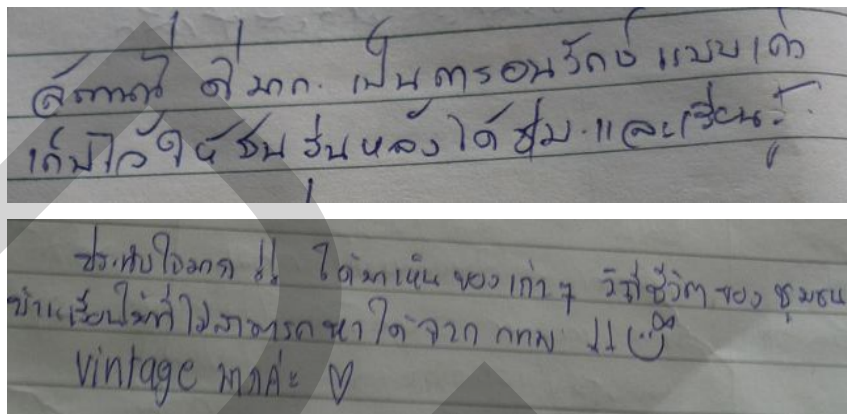 สถานที่ ดี มาก. เป็นการอนุรักษ์ แบบเก่า
เก็บไว้ให้ชนรุ่นหลังได้ชม. และเรียนรู้.
ประทับใจมาก !! ได้มาเห็น ของเก่าๆ วิถีชีวิตของ ชุมชน
บ้านเรือนไม้ที่ไม่สามารถหาได้จาก กทม !!
vintage มากค่ะ ♡